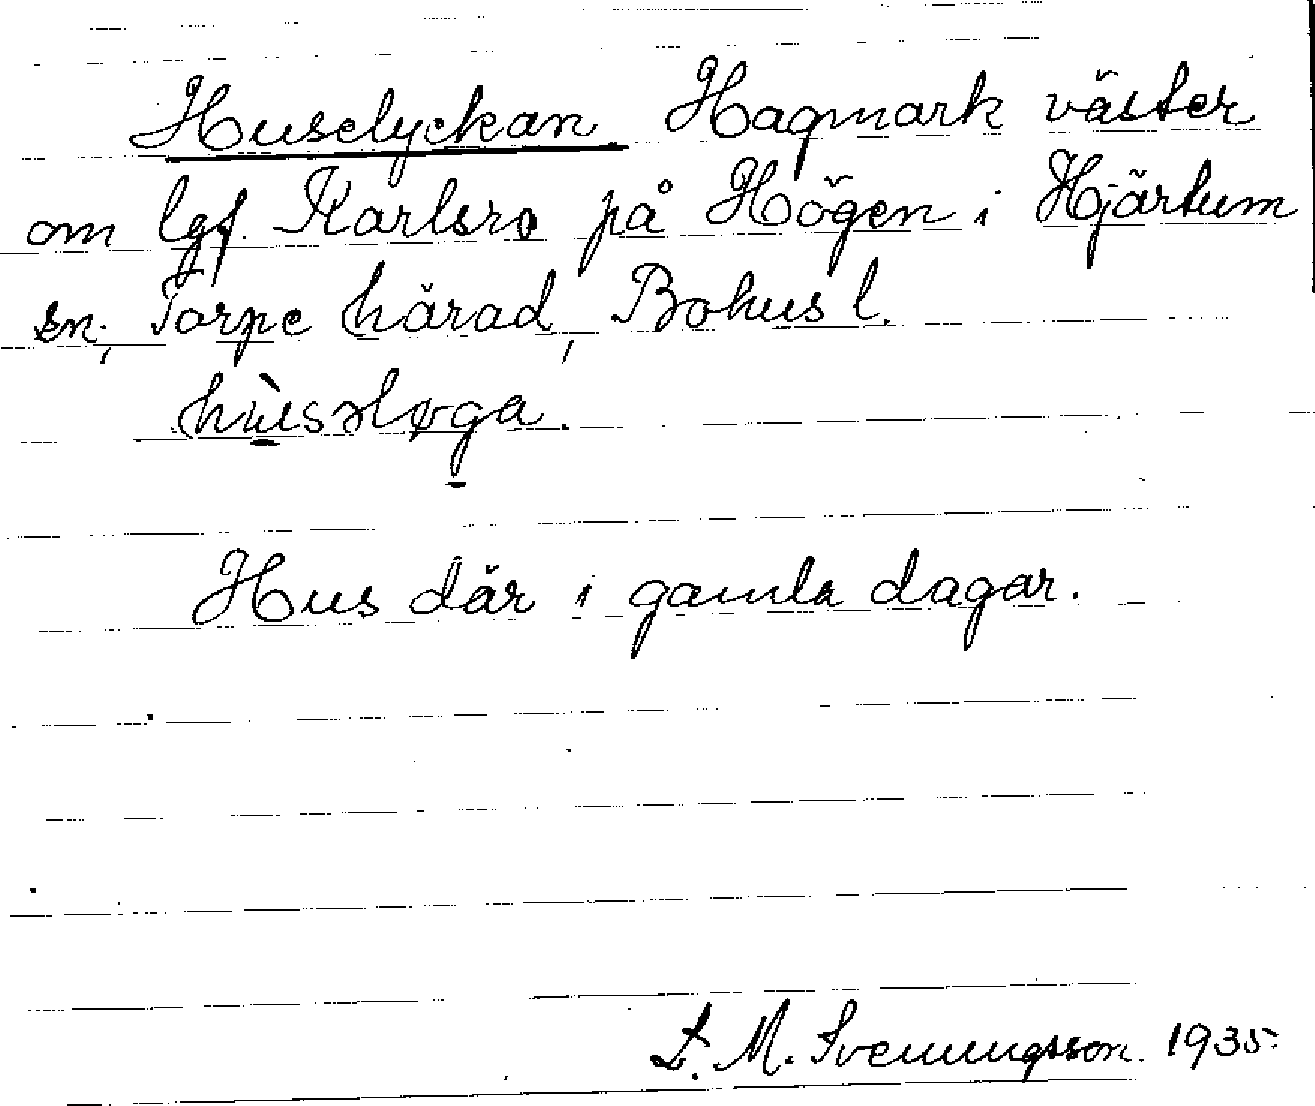 Huselyckan Hagmark väster
om lgf. Karlsro på Högen i Hjärtum
sn, Torpe härad, Bohus l.
hùsəløga.
Hus där i gamla dagar.
D. M. Svenningsson. 1935.